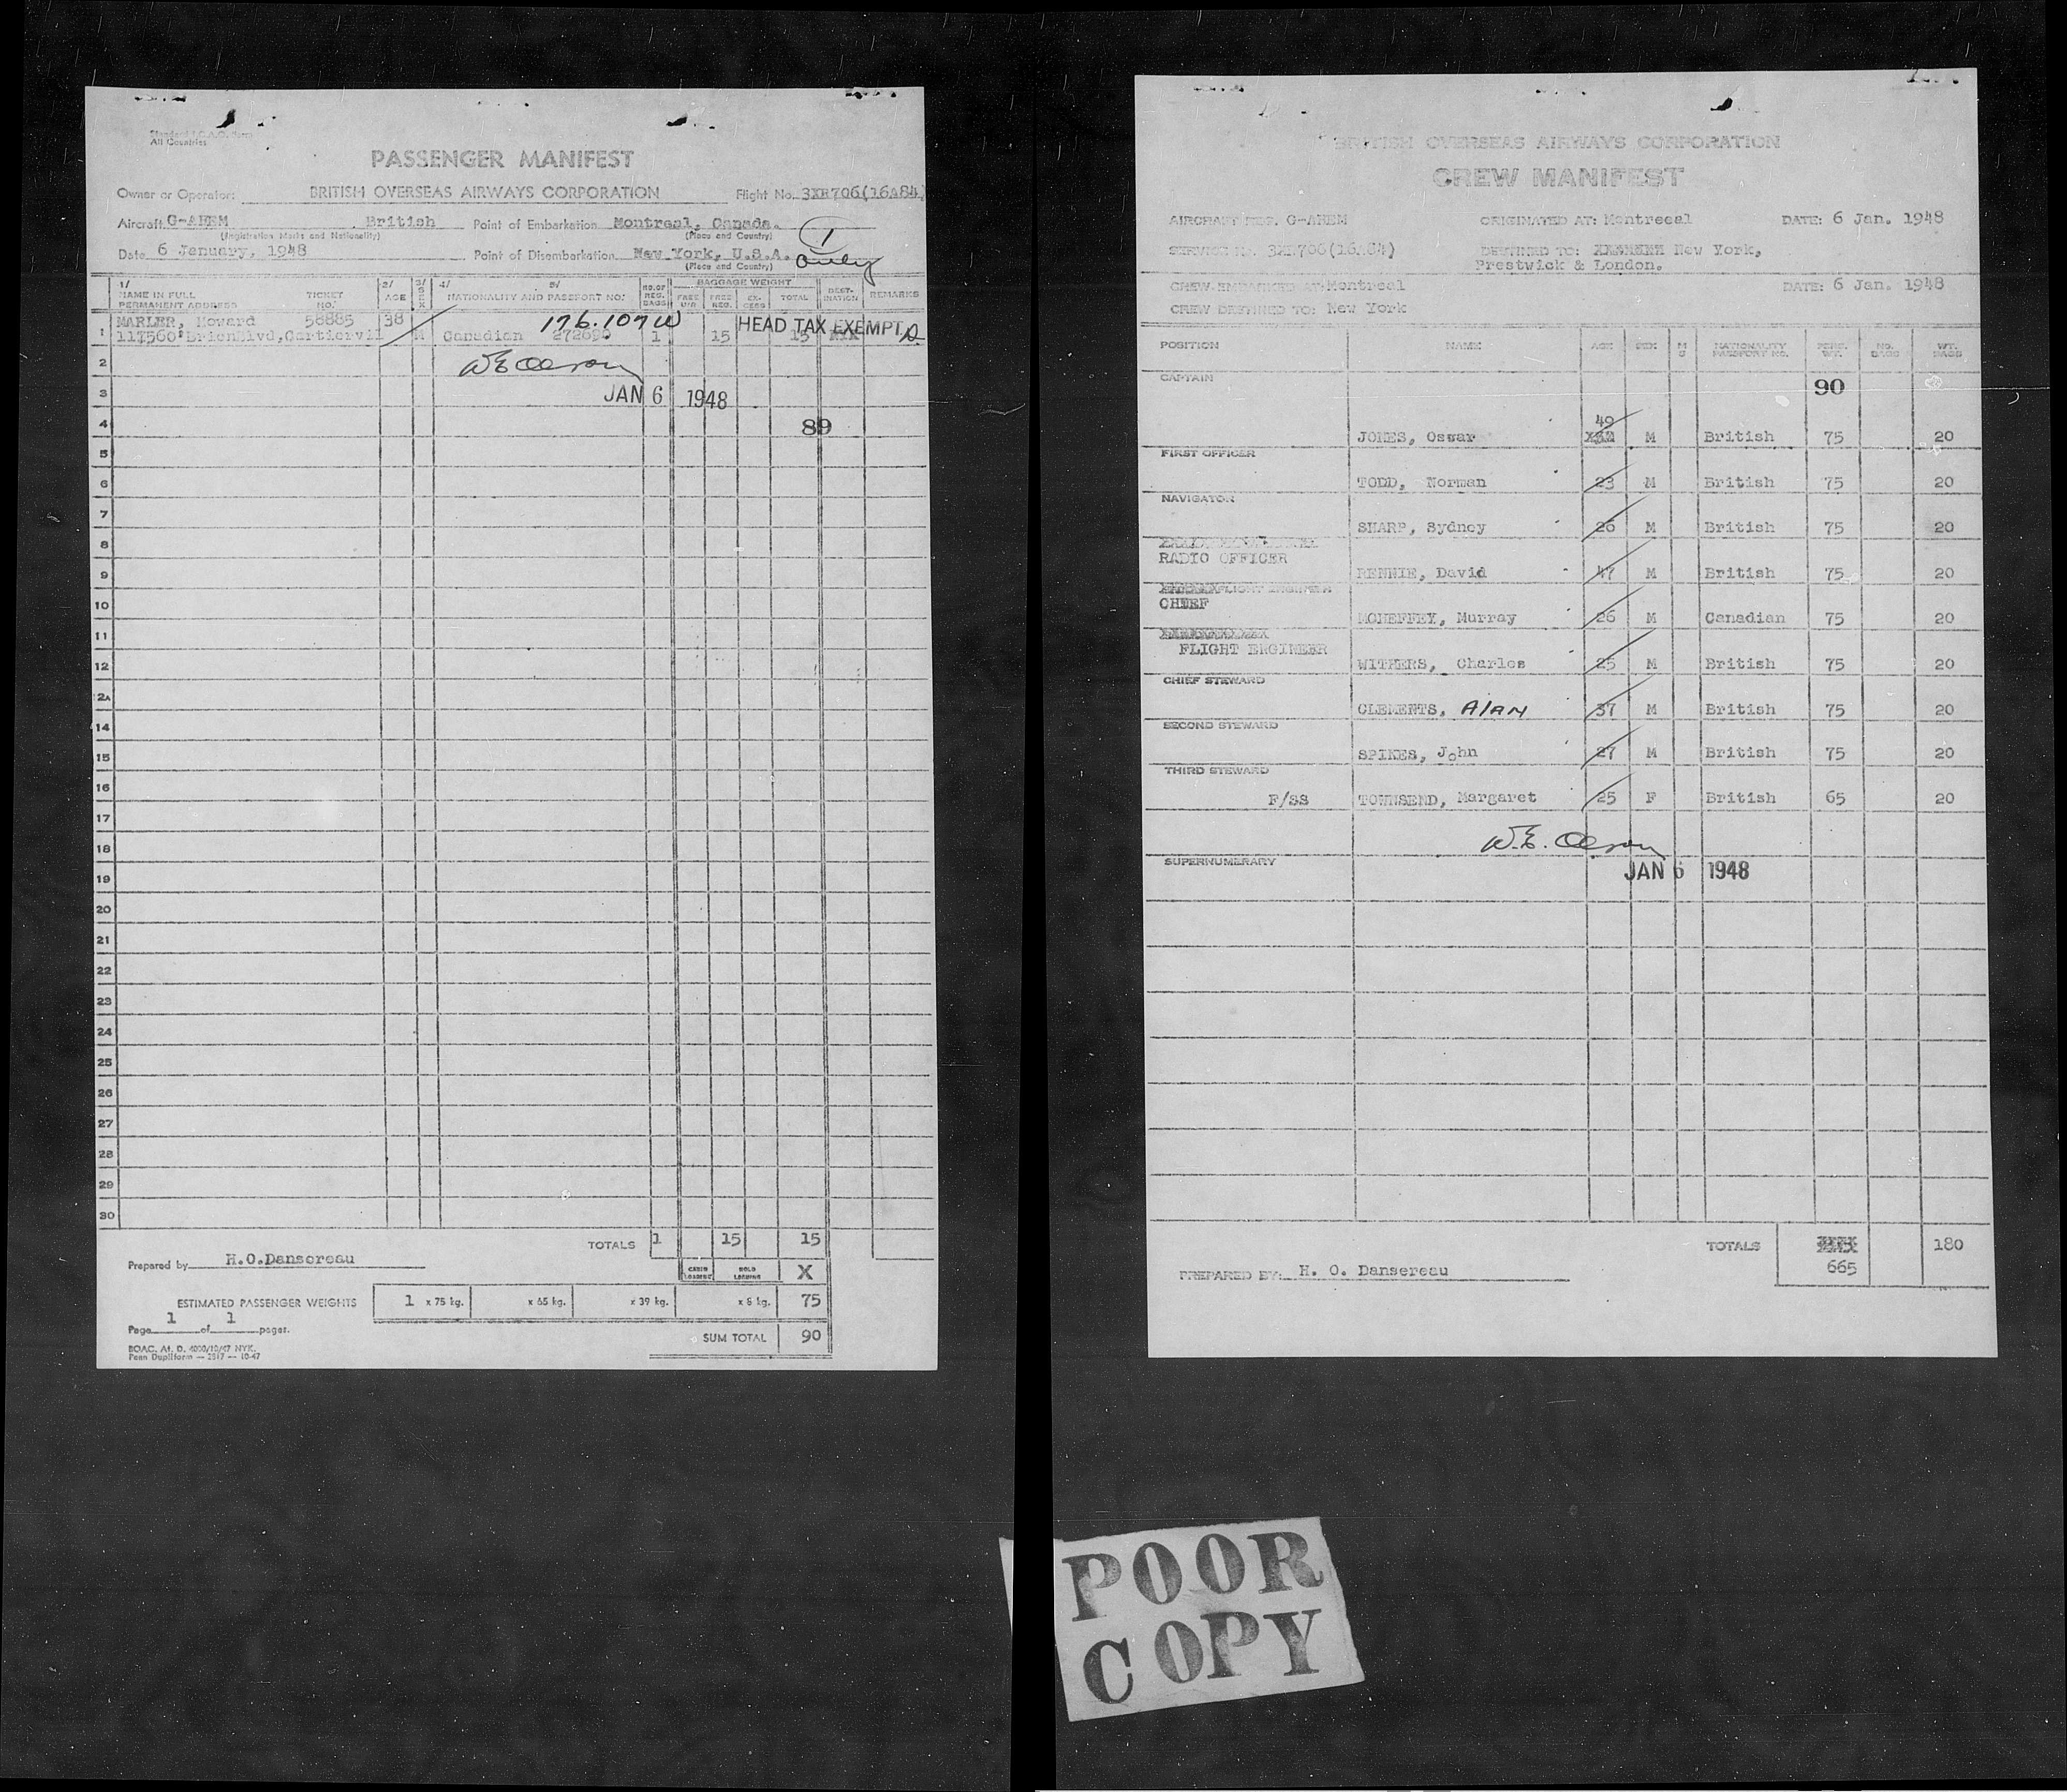 Standard I.C.A.O. Form
All Countries
PASSENGER MANIFEST
Owner or Operator: BRITISH OVERSEAS AIRWAYS CORPORATION Flight No. 3XR706(16A84)
Aircraft G-AHEM British Point of Embarkation Montreal, Canada. 1
(Registration Marks and Nationality) (Place and Country)
Date 6 January, 1948 Point of Disembarkation New York, U.S.A. only
(Place and Country)
1/ 2/ 3/ 4/ 5/ NO. OF REG. BAGS BAGGAGE WEIGHT
NAME IN FULL PERMANENT ADDRESS TICKET NO. AGE SEX NATIONALITY AND PASSPORT NO. FREE FREE REG. EXCESS TOTAL DESTINATION REMARKS
MARLER, Howard 58885 38 176.107W HEAD TAX EXEMPT
1 Brien Blvd, Cartiervil M Canadian 1 15 15
2 W E Olson
3 JAN 6 1948
4 89
5
6
7
8
9
10
11
12
2A
14
15
16
17
18
19
20
21
22
23
24
25
26
27
28
29
30
TOTALS 1 15 15
Prepared by H.O.Dansereau
CABIN LOADING HOLD LOADING X
ESTIMATED PASSENGER WEIGHTS 1 x 75 kg. x 65 kg. x 39 kg. x 8 kg. 75
Page 1 of 1 pages.
SUM TOTAL 90
BOAC. At. D. 4000/10/47 NYK.
Penn Dupliform — 2517 — 10-47
BRITISH OVERSEAS AIRWAYS CORPORATION
CREW MANIFEST
AIRCRAFT REG. G-AHEM ORIGINATED AT: Montreeal DATE: 6 Jan. 1948
SERVICE NO. 3XR706(16A84) DESTINED TO: New York,
Prestwick & London.
CREW EMBARKED AT: Montreal DATE: 6 Jan. 1948
CREW DESTINED TO: New York
POSITION NAME AGE SEX M S NATIONALITY PASSPORT NO. PERS. WT. NO. BAGS WT. BAGS
CAPTAIN 90
40
JONES, Oswar M British 75 20
FIRST OFFICER
TODD, Norman 23 M British 75 20
NAVIGATOR
SHARP, Sydney 26 M British 75 20
RADIO OFFICER
RENNIE, David 47 M British 75 20
FLIGHT ENGINEER
CHIEF
MCHEFFEY, Murray 26 M Canadian 75 20
FLIGHT ENGINEER
WITHERS, Charles 25 M British 75 20
CHIEF STEWARD
CLEMENTS, Alan 37 M British 75 20
SECOND STEWARD
SPIKES, John 27 M British 75 20
THIRD STEWARD
F/SS TOWNSEND, Margaret 25 F British 65 20
W.E. Olson
SUPERNUMERARY
JAN 6 1948
TOTALS 180
665
PREPARED BY: H. O. Dansereau
POOR
COPY